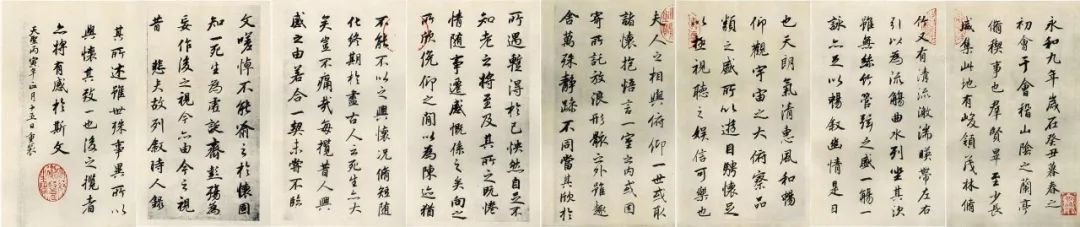 永和九年歲在癸丑暮春之
初會于會稽山陰之蘭亭
脩禊事也羣賢畢至少長
咸集此地有峻領茂林脩
竹又有清流激湍暎帶左右
引以為流觴曲水列坐其次
雖無絲竹管弦之盛一觴一
詠亦足以暢敘幽情是日
也天朗氣清惠風和暢
仰觀宇宙之大俯察品
類之盛所以遊目騁懷足
以極視聽之娛信可樂也
夫人之相與俯仰一世或取
諸懷抱悟言一室之內或因
寄所託放浪形骸之外雖趣
舍萬殊靜躁不同當其欣於
所遇暫得於己怏然自足不
知老之將至及其所之既惓
情隨事遷感慨係之矣向之
所欣俛仰之間以為陳迹猶
不能不以之興懷況脩短隨
化終期於盡古人云死生亦大
矣豈不痛哉每攬昔人興
感之由若合一契未嘗不臨
文嗟悼不能喻之於懷固
知一死生為虛誕齊彭殤為
妄作後之視今亦由今之視
昔 悲夫故列敘時人錄
其所述雖世殊事異所以
興懷其致一也後之攬者
亦將有感於斯文
天聖丙寅年正月十五日重裝